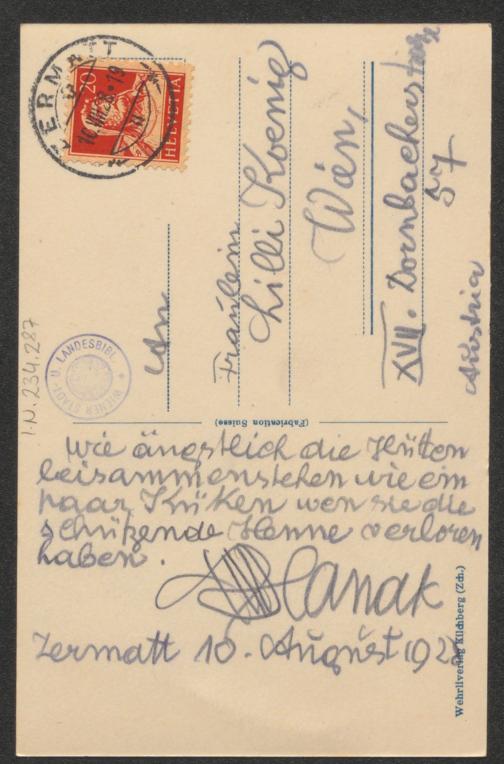 ZERMATT
10.VIII.28.-19
20
HELVETIA
An
Fräulein
Lilli Koenig
Wien,
XVII. Dornbacherstraße
57
Austria
WIENER STADT- U. LANDESBIBL.
I.N. 234.287
(Fabrication Suisse)
wie ängstlich die Hütten
beisammenstehen wie ein
paar Küken wen sie die
schützende Henne verloren
haben.
Hanak
Zermatt 10. August 1928
Wehrliverlag Kilchberg (Zch.)